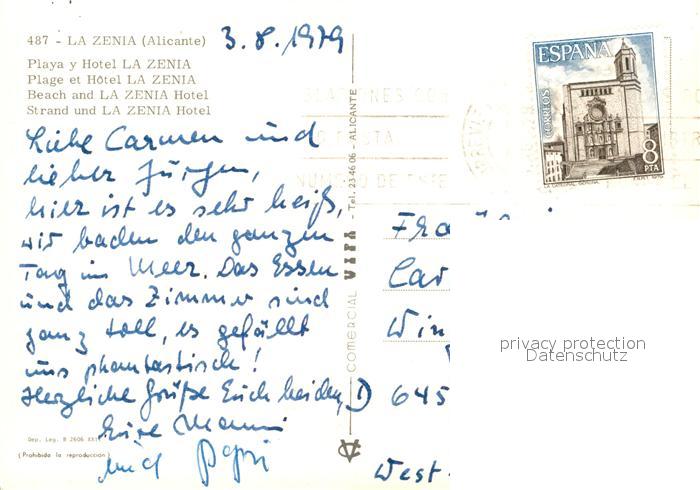 487 - LA ZENIA (Alicante) 3.8.1979
Playa y Hotel LA ZENIA
Plage et Hôtel LA ZENIA
Beach and LA ZENIA Hotel
Strand und LA ZENIA Hotel
Liebe Carmen und
lieber Jürgen,
hier ist es sehr heiß,
wir baden den ganzen
Tag im Meer. Das Essen
und das Zimmer sind
ganz toll, es gefällt
uns phantastisch!
Herzliche Grüße Euch beiden,
Eure Mammi
und Papi
Dep. Leg. B 2606
(Prohibida la reproducción)
COMERCIAL VIPA - Tel. 23 46 06 - ALICANTE
ESPAÑA
CORREOS
8
PTA
NUMERO DE ESTE
D 645
West
privacy protection
Datenschutz